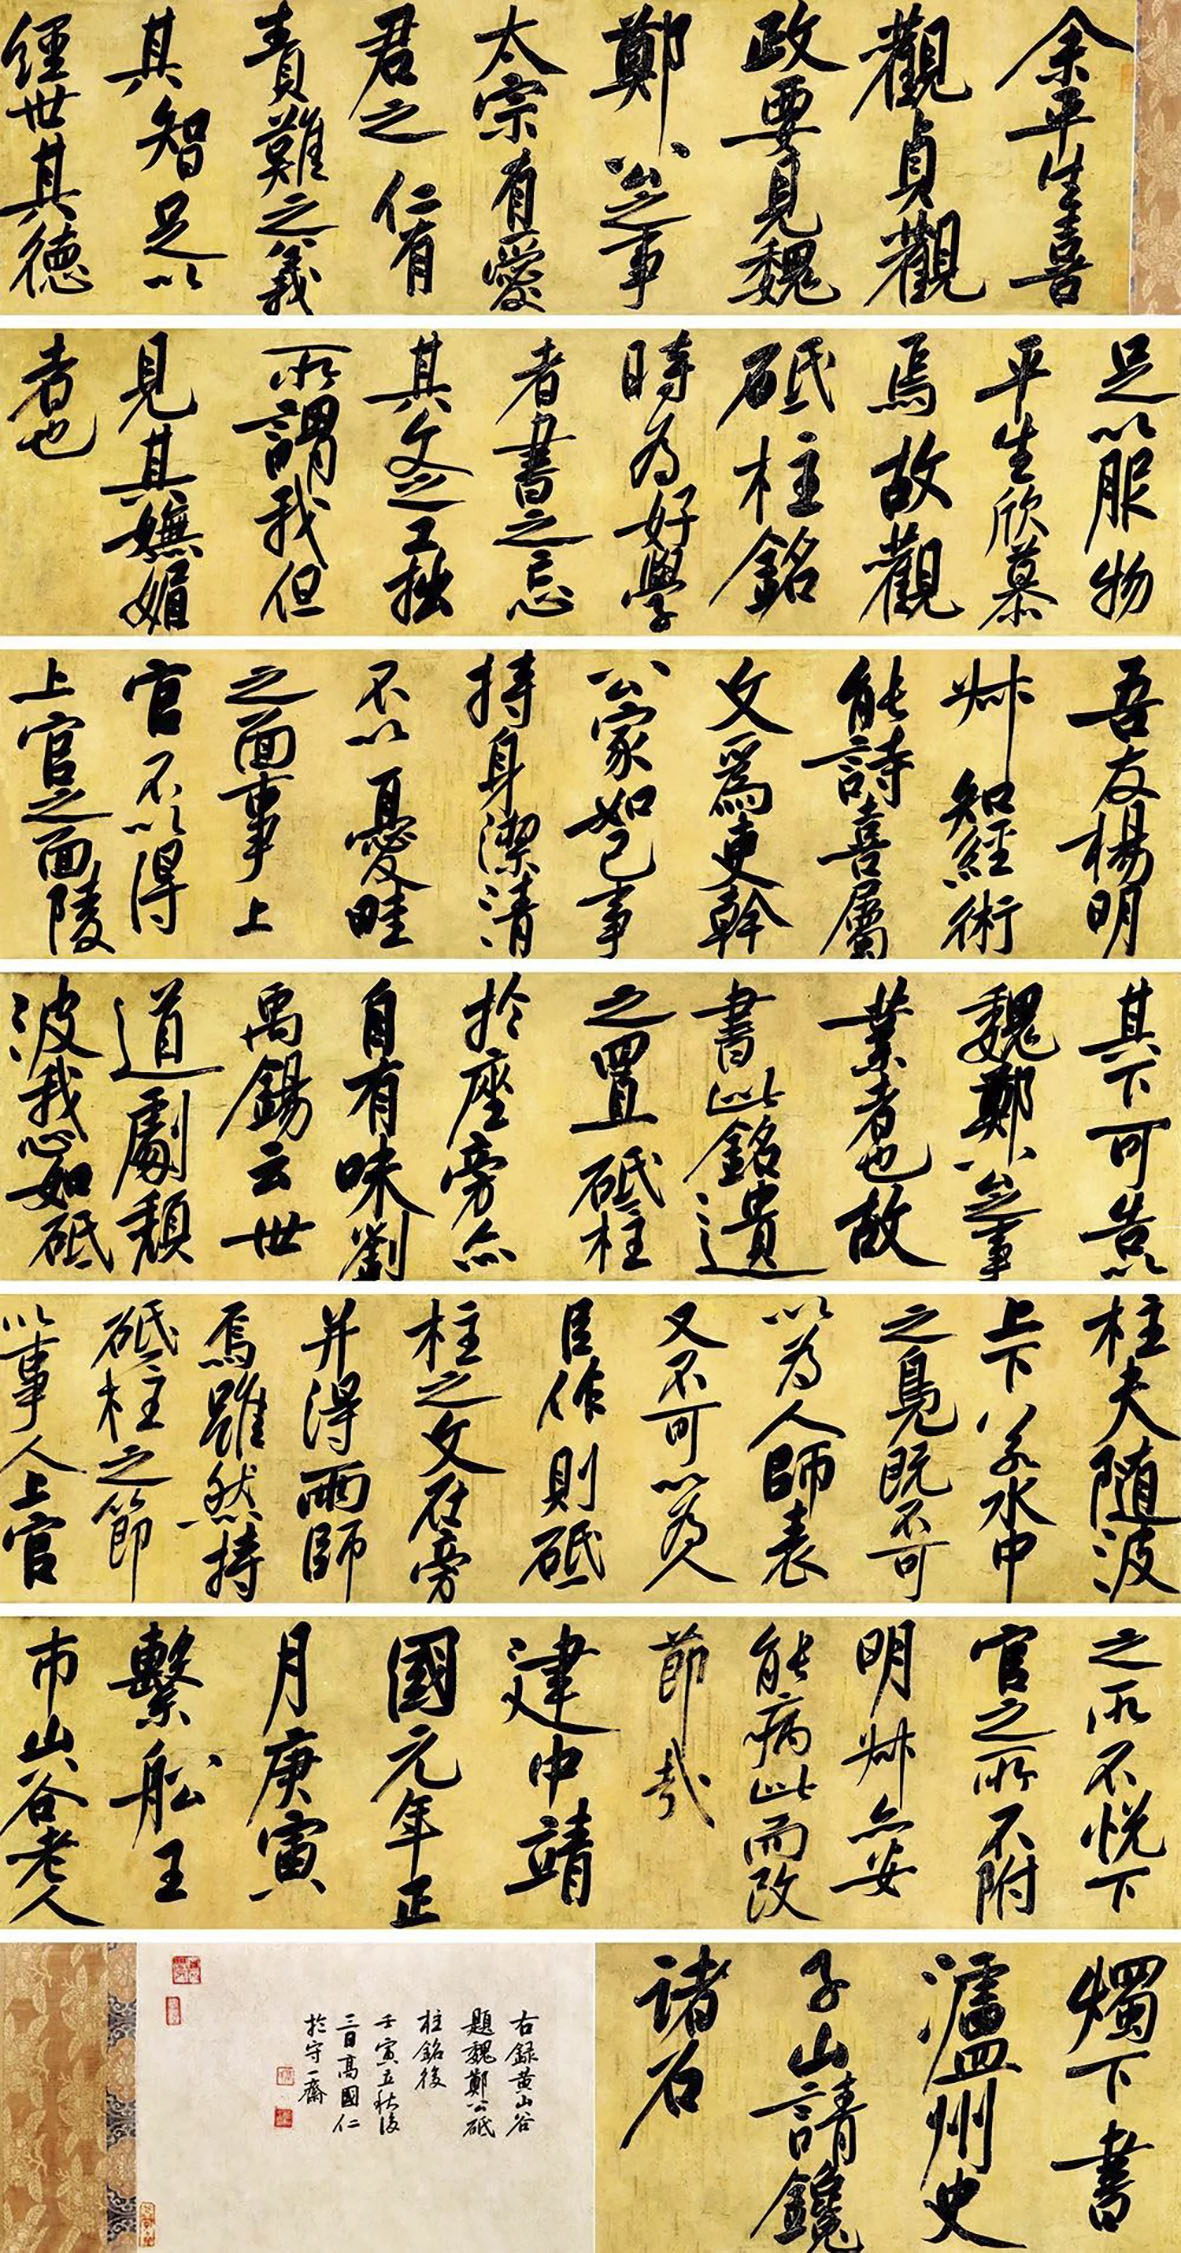 余平生喜
觀貞觀
政要見魏
鄭公之事
太宗有愛
君之仁有
責難之義
其智足以
經世其德
足以服物
平生欣慕
焉故觀
砥柱銘
時為好學
者書之忘
其文之工拙
所謂我但
見其嫵媚
者也
吾友楊明
叔知經術
能詩喜屬
文為吏幹
公家如己事
持身潔清
不以憂畦
之面事上
官不以得
上官之面陵
其下可告以
魏鄭公之事
業者也故
書此銘遺
之置砥柱
於座旁亦
自有味劉
禹錫云世
道劇頹
波我心如砥
柱夫随波
上下若水中
之鳧既不可
以為人師表
又不可以為人
臣作則砥
柱之文在旁
并得兩師
焉雖然持
砥柱之節
以事人上官
之所不悅下
官之所不附
明叔亦安
能病此而改
節哉
建中靖
國元年正
月庚寅
繫船王
市山谷老人
燭下書
瀘州史
子山請鑱
諸石
右録黄山谷
題魏鄭公砥
柱銘後
壬寅立秋後
三日高國仁
於守一齋